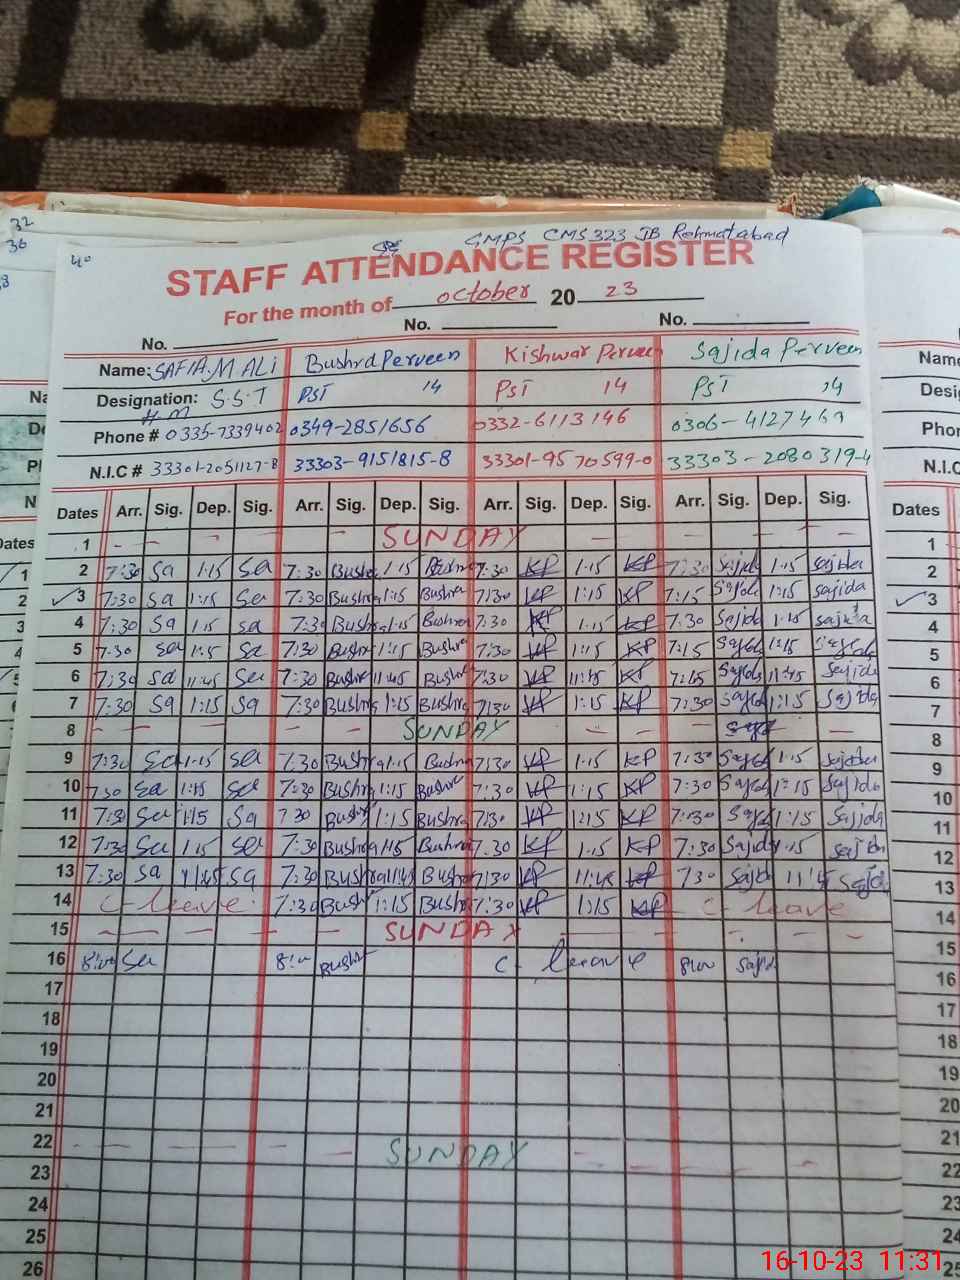 32
36
40
GMPS CMS 323 JB Rehmatabad
STAFF ATTENDANCE REGISTER
For the month of October 20 23
No. No. No.
Name: SAFIA M ALi Bushra Perveen Kishwar Perveen Sajida Perveen Name
Designation: S.S.T PST 14 PST 14 PST 14
H.M
Phone # 0335-7339402 0349-2851656 0332-6113146 0306-4127469
N.I.C # 33301-2051127-8 33303-9151815-8 33301-9570599-0 33303-2080319-4 N.I.C
Dates Arr. Sig. Dep. Sig. Arr. Sig. Dep. Sig. Arr. Sig. Dep. Sig. Arr. Sig. Dep. Sig. Dates
1 SUNDAY 1
2 7:30 Sa 1:15 Sa 7:30 Bushra 1:15 7:30 KP 1:15 KP 7:30 Sajida 1:15 Sajida 2
3 7:30 Sa 1:15 Sa 7:30 Bushra 1:15 Bushra 7:30 KP 1:15 KP 7:15 Sajida 1:15 Sajida 3
4 7:30 Sa 1:15 Sa 7:30 Bushra 1:15 Bushra 7:30 KP 1:15 KP 7:30 Sajida 1:15 Sajida 4
5 7:30 Sa 1:15 Sa 7:30 Bushra 1:15 Bushra 7:30 KP 1:15 KP 7:15 Sajida 1:15 Sajida 5
6 7:30 Sa 11:45 Sa 7:30 Bushra 11:45 Bushra 7:30 KP 11:45 KP 7:15 Sajida 11:45 Sajida 6
7 7:30 Sa 1:15 Sa 7:30 Bushra 1:15 Bushra 7:30 KP 1:15 KP 7:30 Sajida 1:15 Sajida 7
8 SUNDAY 8
9 7:30 Sa 1:15 Sa 7:30 Bushra 1:15 Bushra 7:30 KP 1:15 KP 7:30 Sajida 1:15 Sajida 9
10 7:30 Sa 1:15 Sa 7:30 Bushra 1:15 Bushra 7:30 KP 1:15 KP 7:30 Sajida 1:15 Sajida 10
11 7:30 Sa 1:15 Sa 7:30 Bushra 1:15 Bushra 7:30 KP 1:15 KP 7:30 Sajida 1:15 Sajida 11
12 7:30 Sa 1:15 Sa 7:30 Bushra 1:15 Bushra 7:30 KP 1:15 KP 7:30 Sajida 1:15 Sajida 12
13 7:30 Sa 11:45 Sa 7:30 Bushra 11:45 Bushra 7:30 KP 11:45 KP 7:30 Sajida 11:45 Sajida 13
14 C-leave 7:30 Bushra 1:15 Bushra 7:30 KP 1:15 KP C-leave 14
15 SUNDAY 15
16 8:00 Sa 8:00 Bushra C-leave 8:00 Sajida 16
17 17
18 18
19 19
20 20
21 21
22 SUNDAY 22
23 23
24 24
25 25
26
16-10-23 11:31